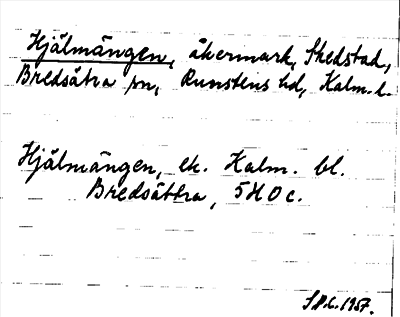 Hjälmängen, åkermark, Skedstad,
Bredsätra sn, Runstens hd, Kalm. l.
Hjälmängen, ek. Kalm. bl.
Bredsättra, 5H0c.
1957.